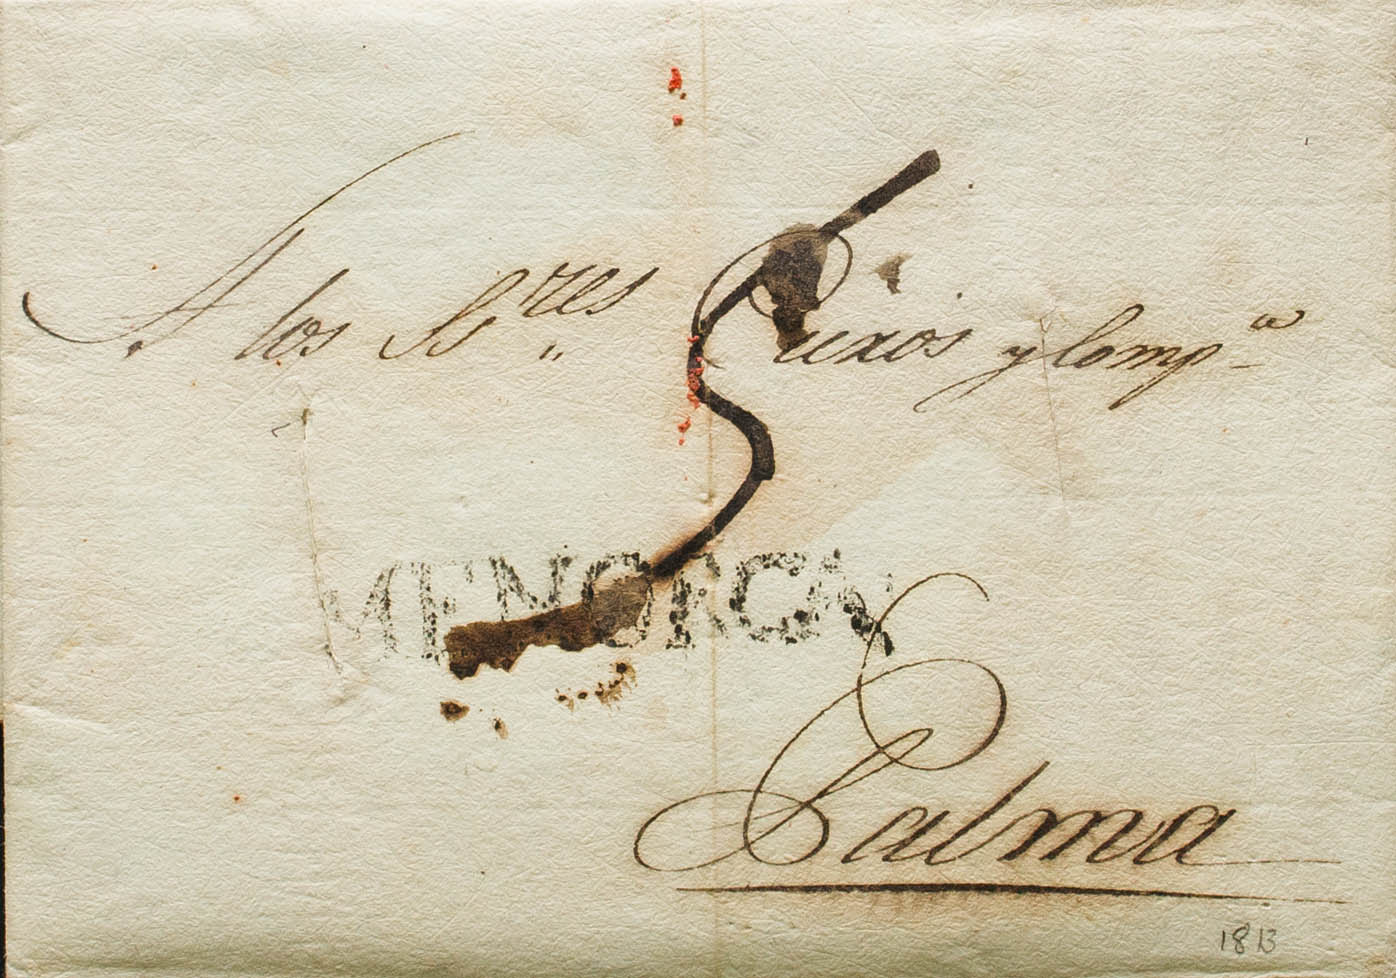 A los S.res Quixos y Comp.a
5
MENORCA
Palma
1813